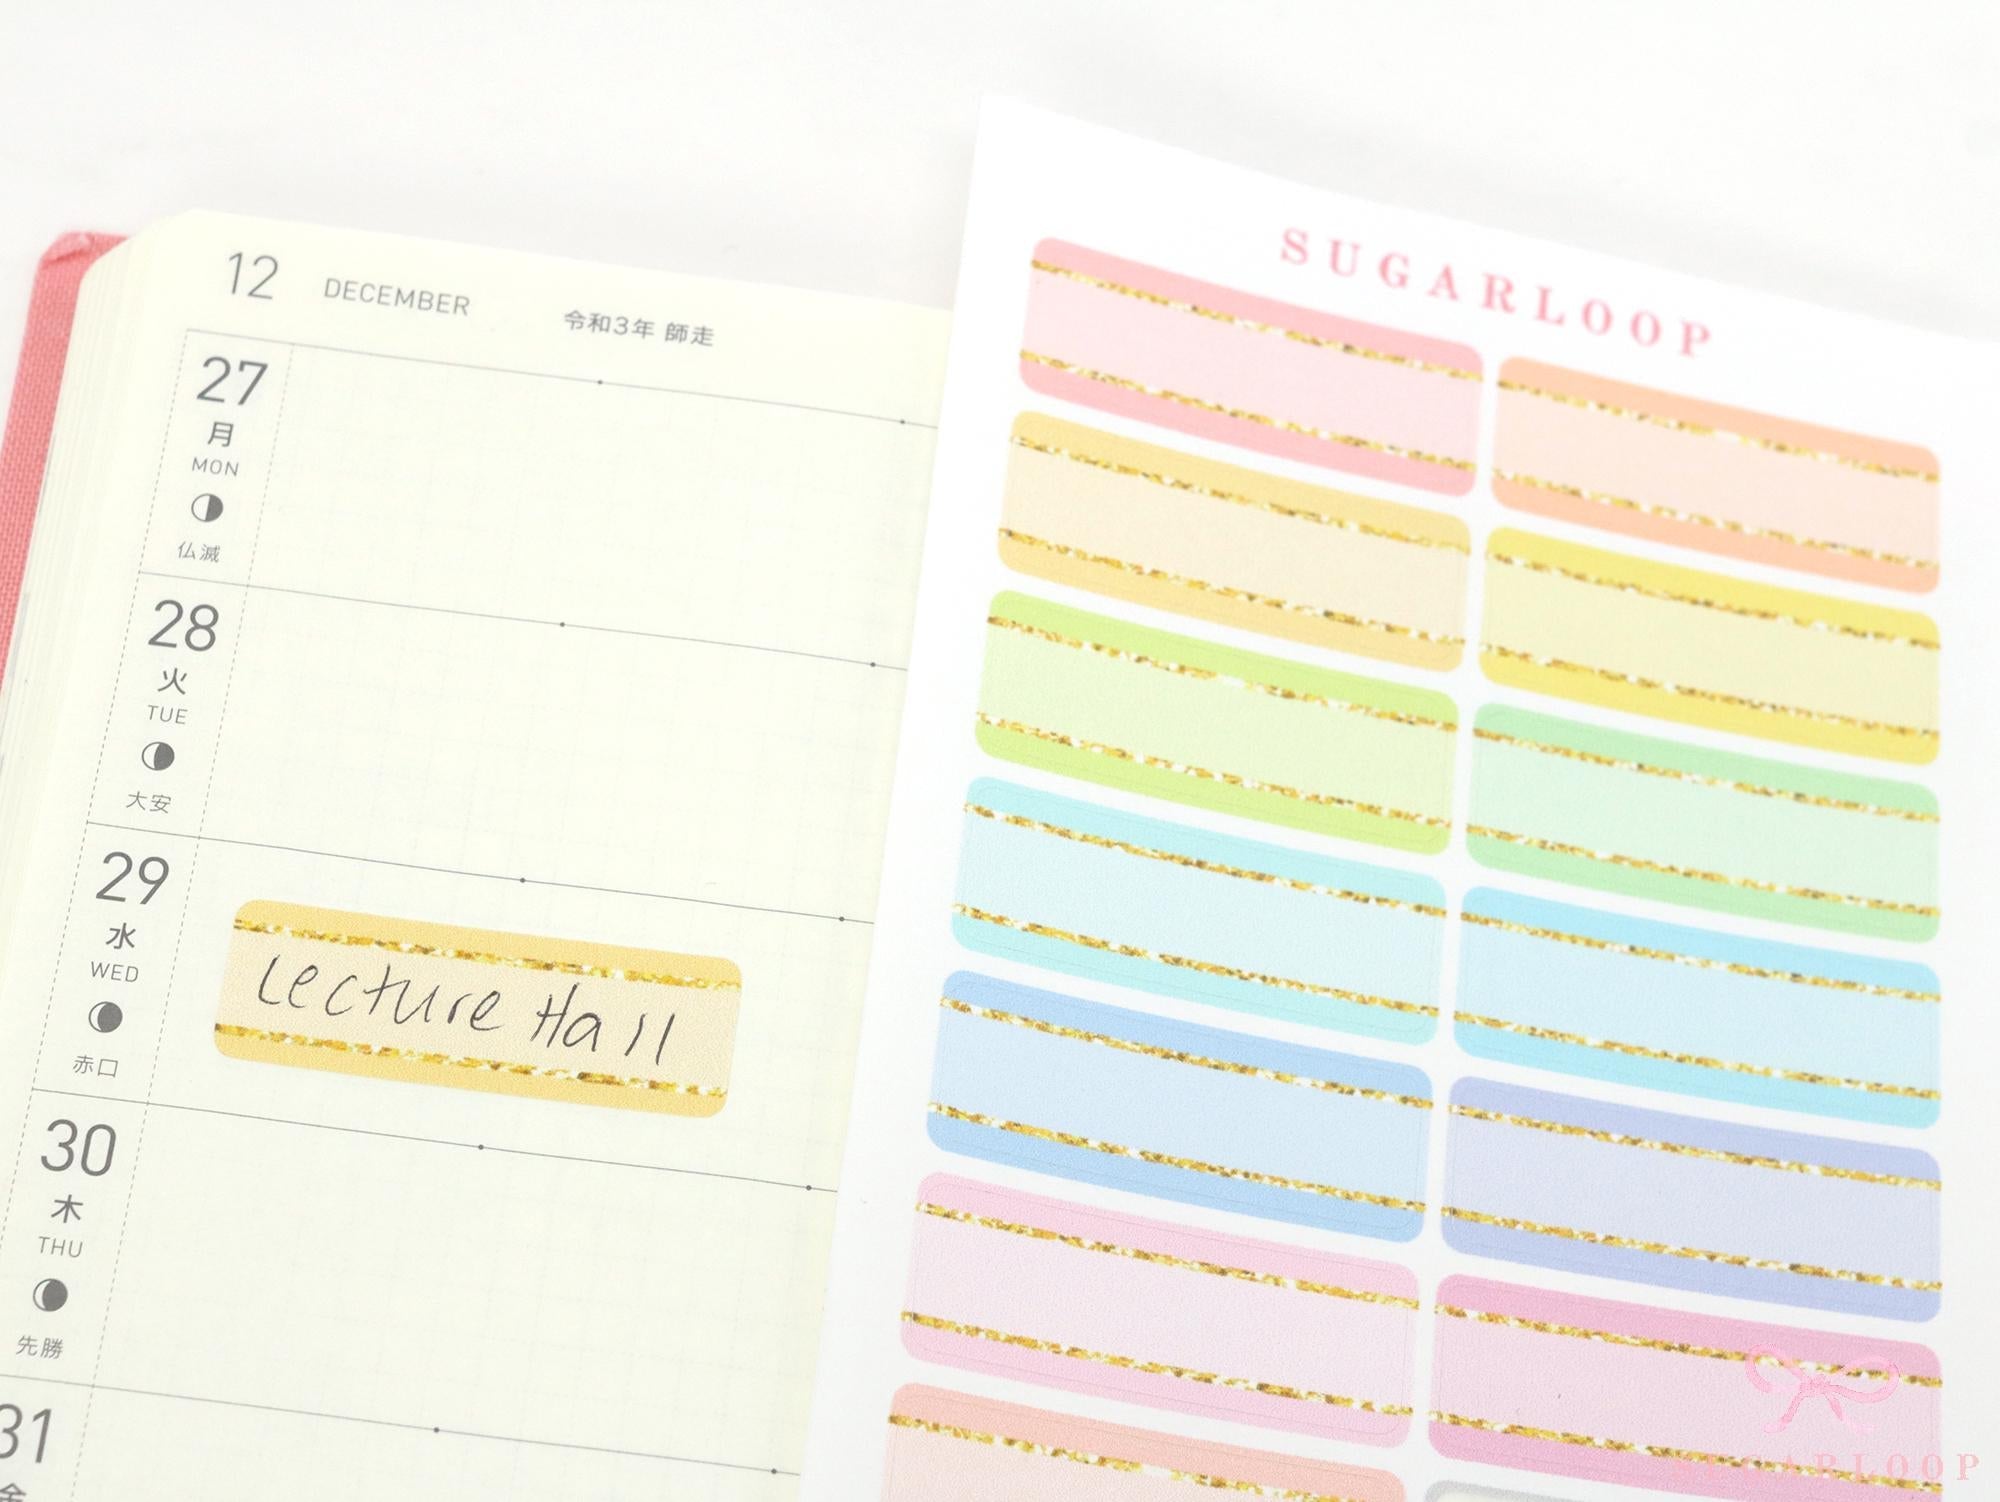 12 DECEMBER 令和3年 師走
27
月
MON
仏滅
28
火
TUE
大安
29
水
WED
赤口
Lecture Hall
30
木
THU
先勝
31
金
SUGARLOOP
SUGARLOOP